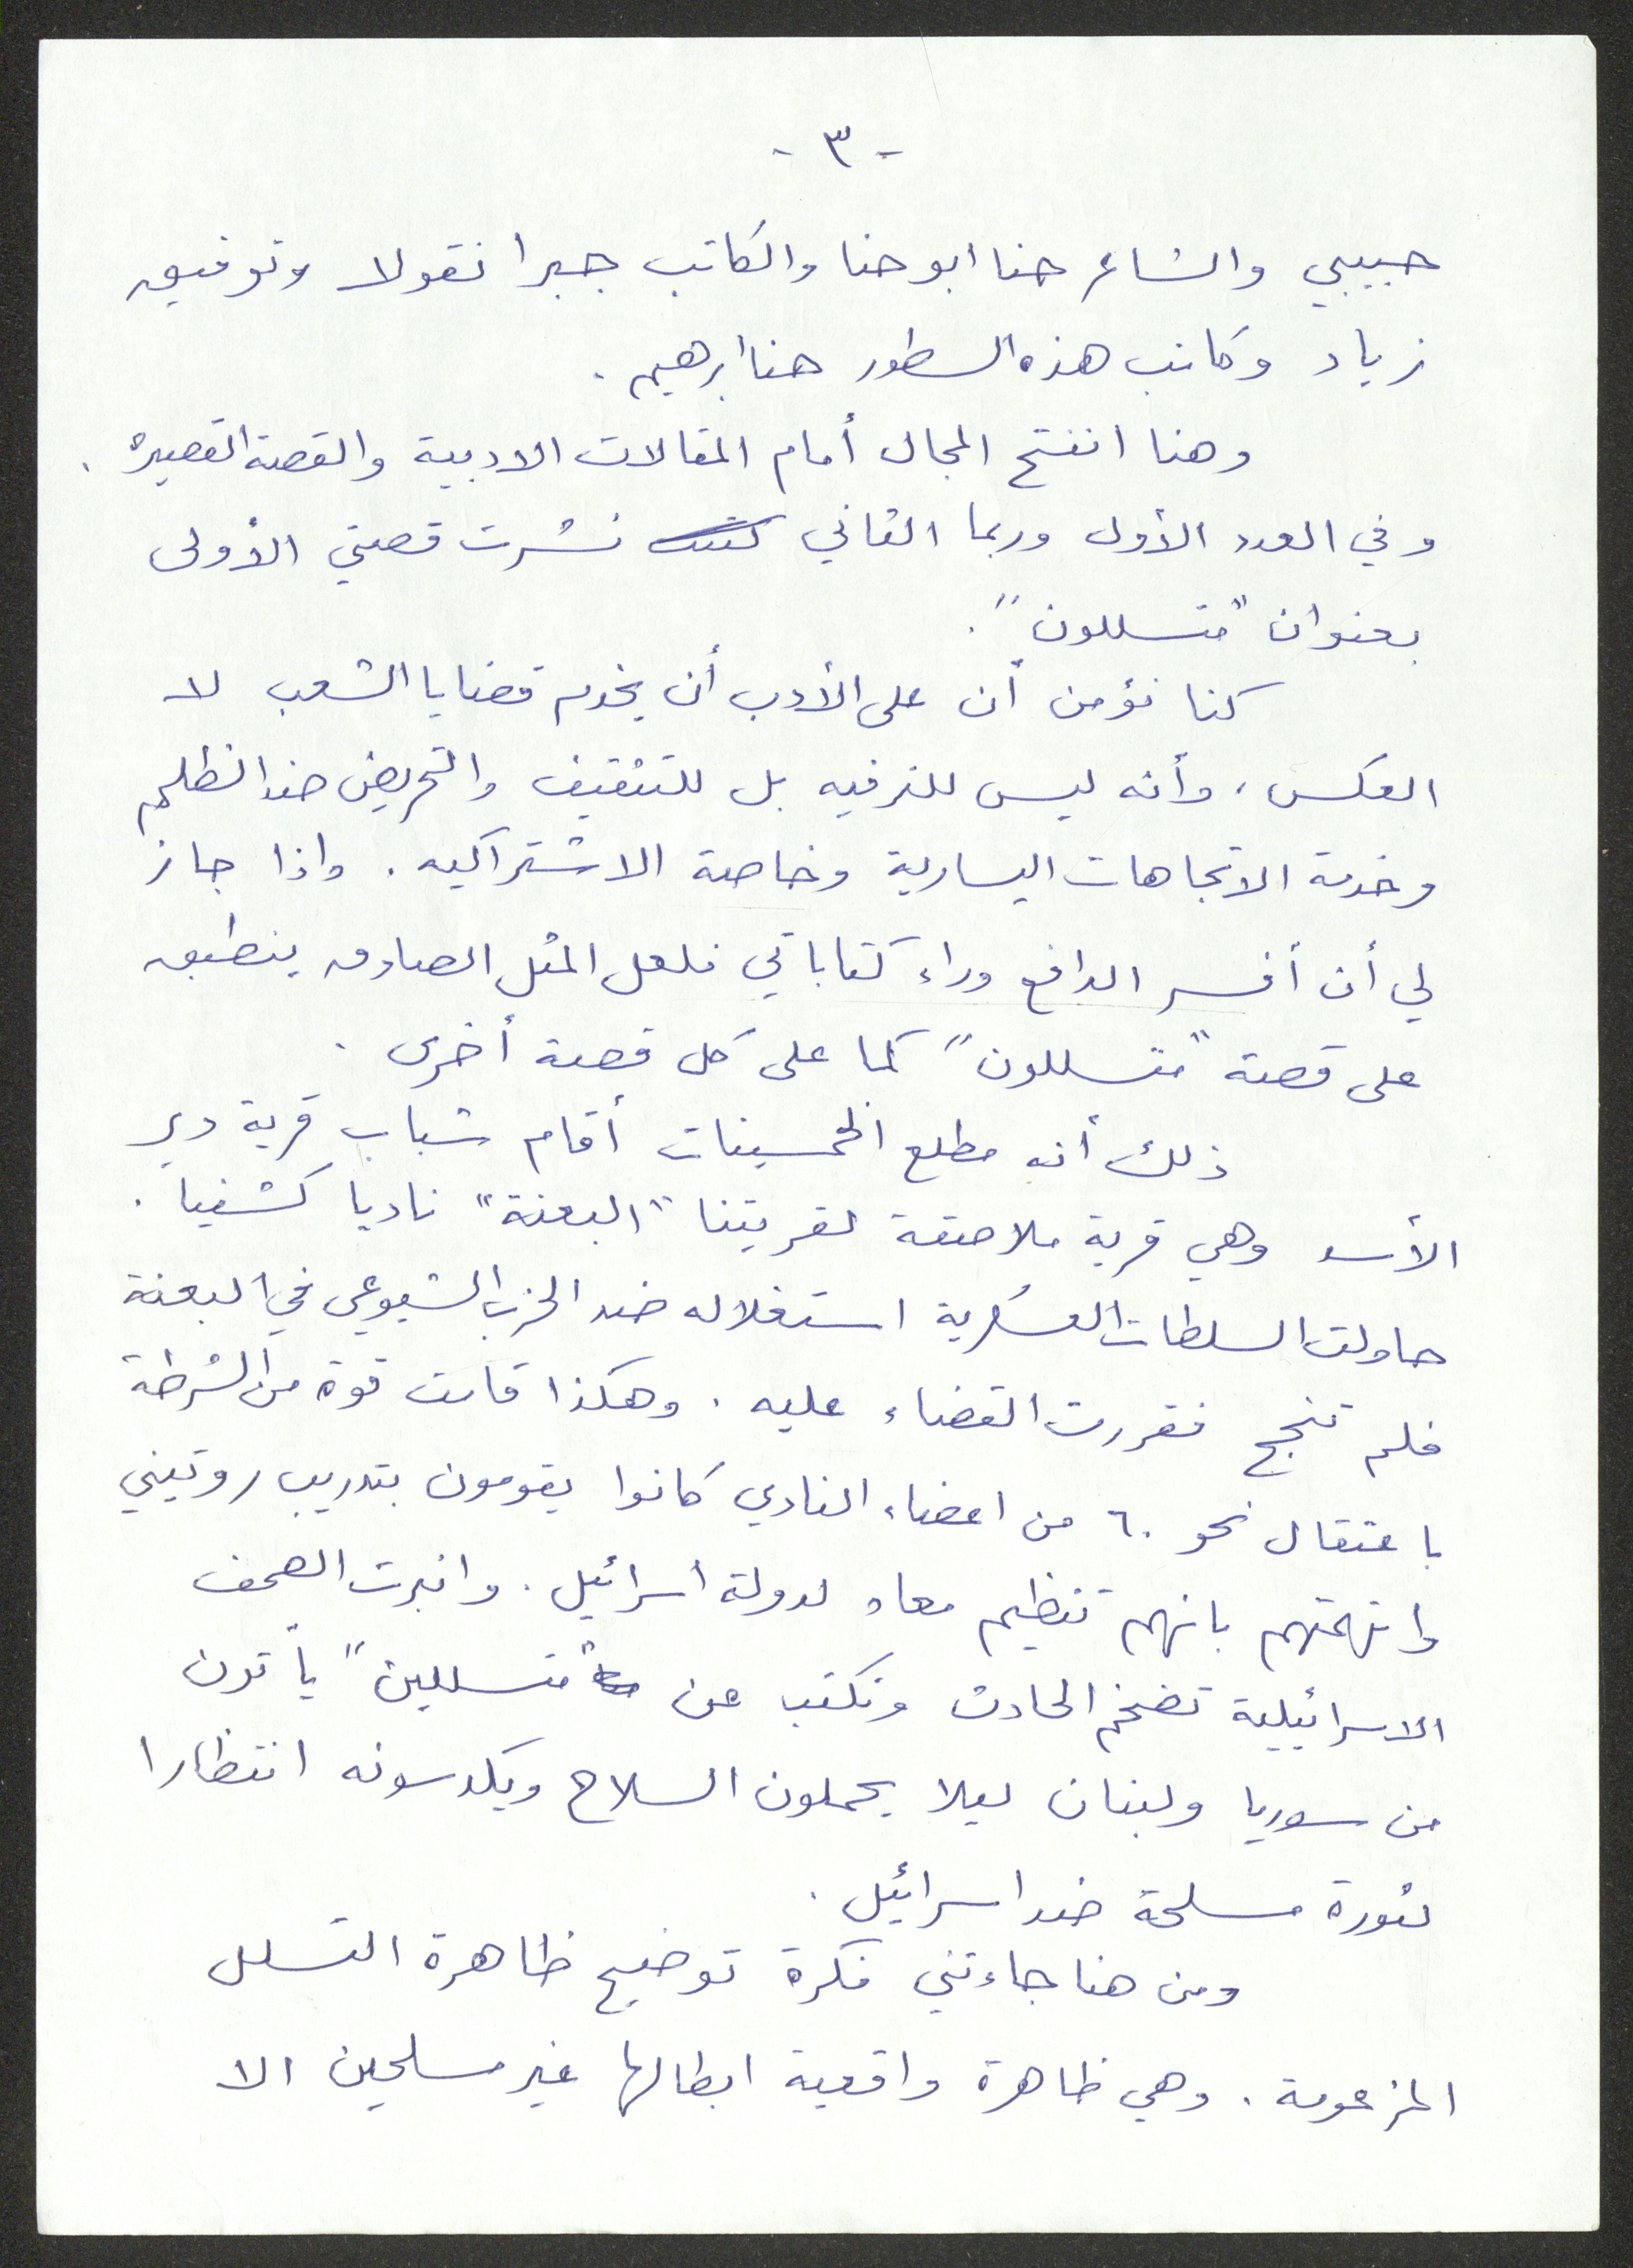 - ٣ -
حبيبي والشاعر حنا ابو حنا والكاتب جبرا نقولا وتوفيق
زياد وكاتب هذه السطور حنا ابرهيم .
وهنا انفتح المجال أمام المقالات الادبية والقصة القصيرة .
وفي العدد الأول وربما الثاني نشرت قصتي الأولى
بعنوان "متسللون" .
كنا نؤمن أن على الأدب أن يخدم قضايا الشعب لا
العكس ، وأنه ليس للترفيه بل للتثقيف والتحريض ضد الظلم
وخدمة الاتجاهات اليسارية وخاصة الاشتراكيه . واذا جاز
لي أن أفسر الدافع وراء كتاباتي فلعل المثل الصادق ينطبق
على قصة "متسللون" كما على كل قصة أخرى .
ذلك أنه مطلع الخمسينات أقام شباب قرية دير
الأسد وهي قرية ملاصقة لقريتنا "البعنة" ناديا كشفيا .
حاولت السلطات العسكرية استغلاله ضد الحزب الشيوعي في البعنة
فلم تنجح فقررت القضاء عليه . وهكذا قامت قوة من الشرطة
باعتقال نحو ٦٠ من اعضاء النادي كانوا يقومون بتدريب روتيني
واتهمتهم بانهم تنظيم معاد لدولة اسرائيل . وانبرت الصحف
الاسرائيلية تضخم الحادث وتكتب عن "متسللين" يأتون
من سوريا ولبنان ليلا يحملون السلاح ويكدسونه انتظارا
لثورة مسلحة ضد اسرائيل .
ومن هنا جاءتني فكرة توضيح ظاهرة التسلل
المزعومة . وهي ظاهرة واقعية ابطالها غير مسلحين الا